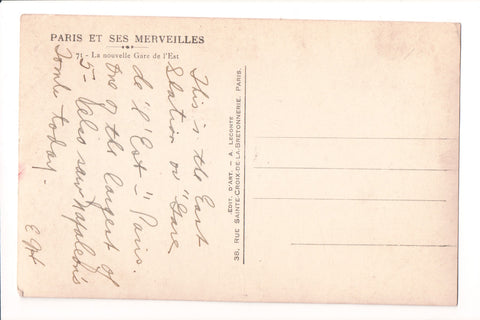 PARIS ET SES MERVEILLES
71 - La nouvelle Gare de l'Est
This is the East
Station or "Gare
de "l'Est" - Paris.
One of the largest of
5 - Also saw Napoleon's
Tomb today -
ÉDIT. D'ART. - A. LECONTE
38, RUE SAINTE-CROIX-DE-LA-BRETONNERIE, PARIS.